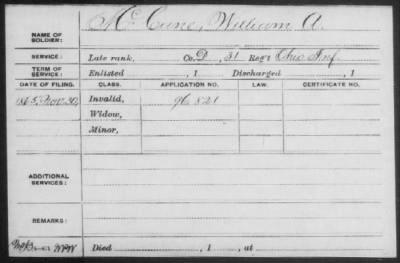 NAME OF SOLDIER: McCune, William A.
SERVICE: Late rank, Co. D, 31 Reg't Ohio Inf.
TERM OF SERVICE: Enlisted , 1 Discharged , 1
DATE OF FILING. CLASS. APPLICATION NO. LAW. CERTIFICATE NO.
1865, Nov. 30 Invalid, 96 821
Widow,
Minor,
ADDITIONAL SERVICES:
REMARKS:
Died , 1 , at